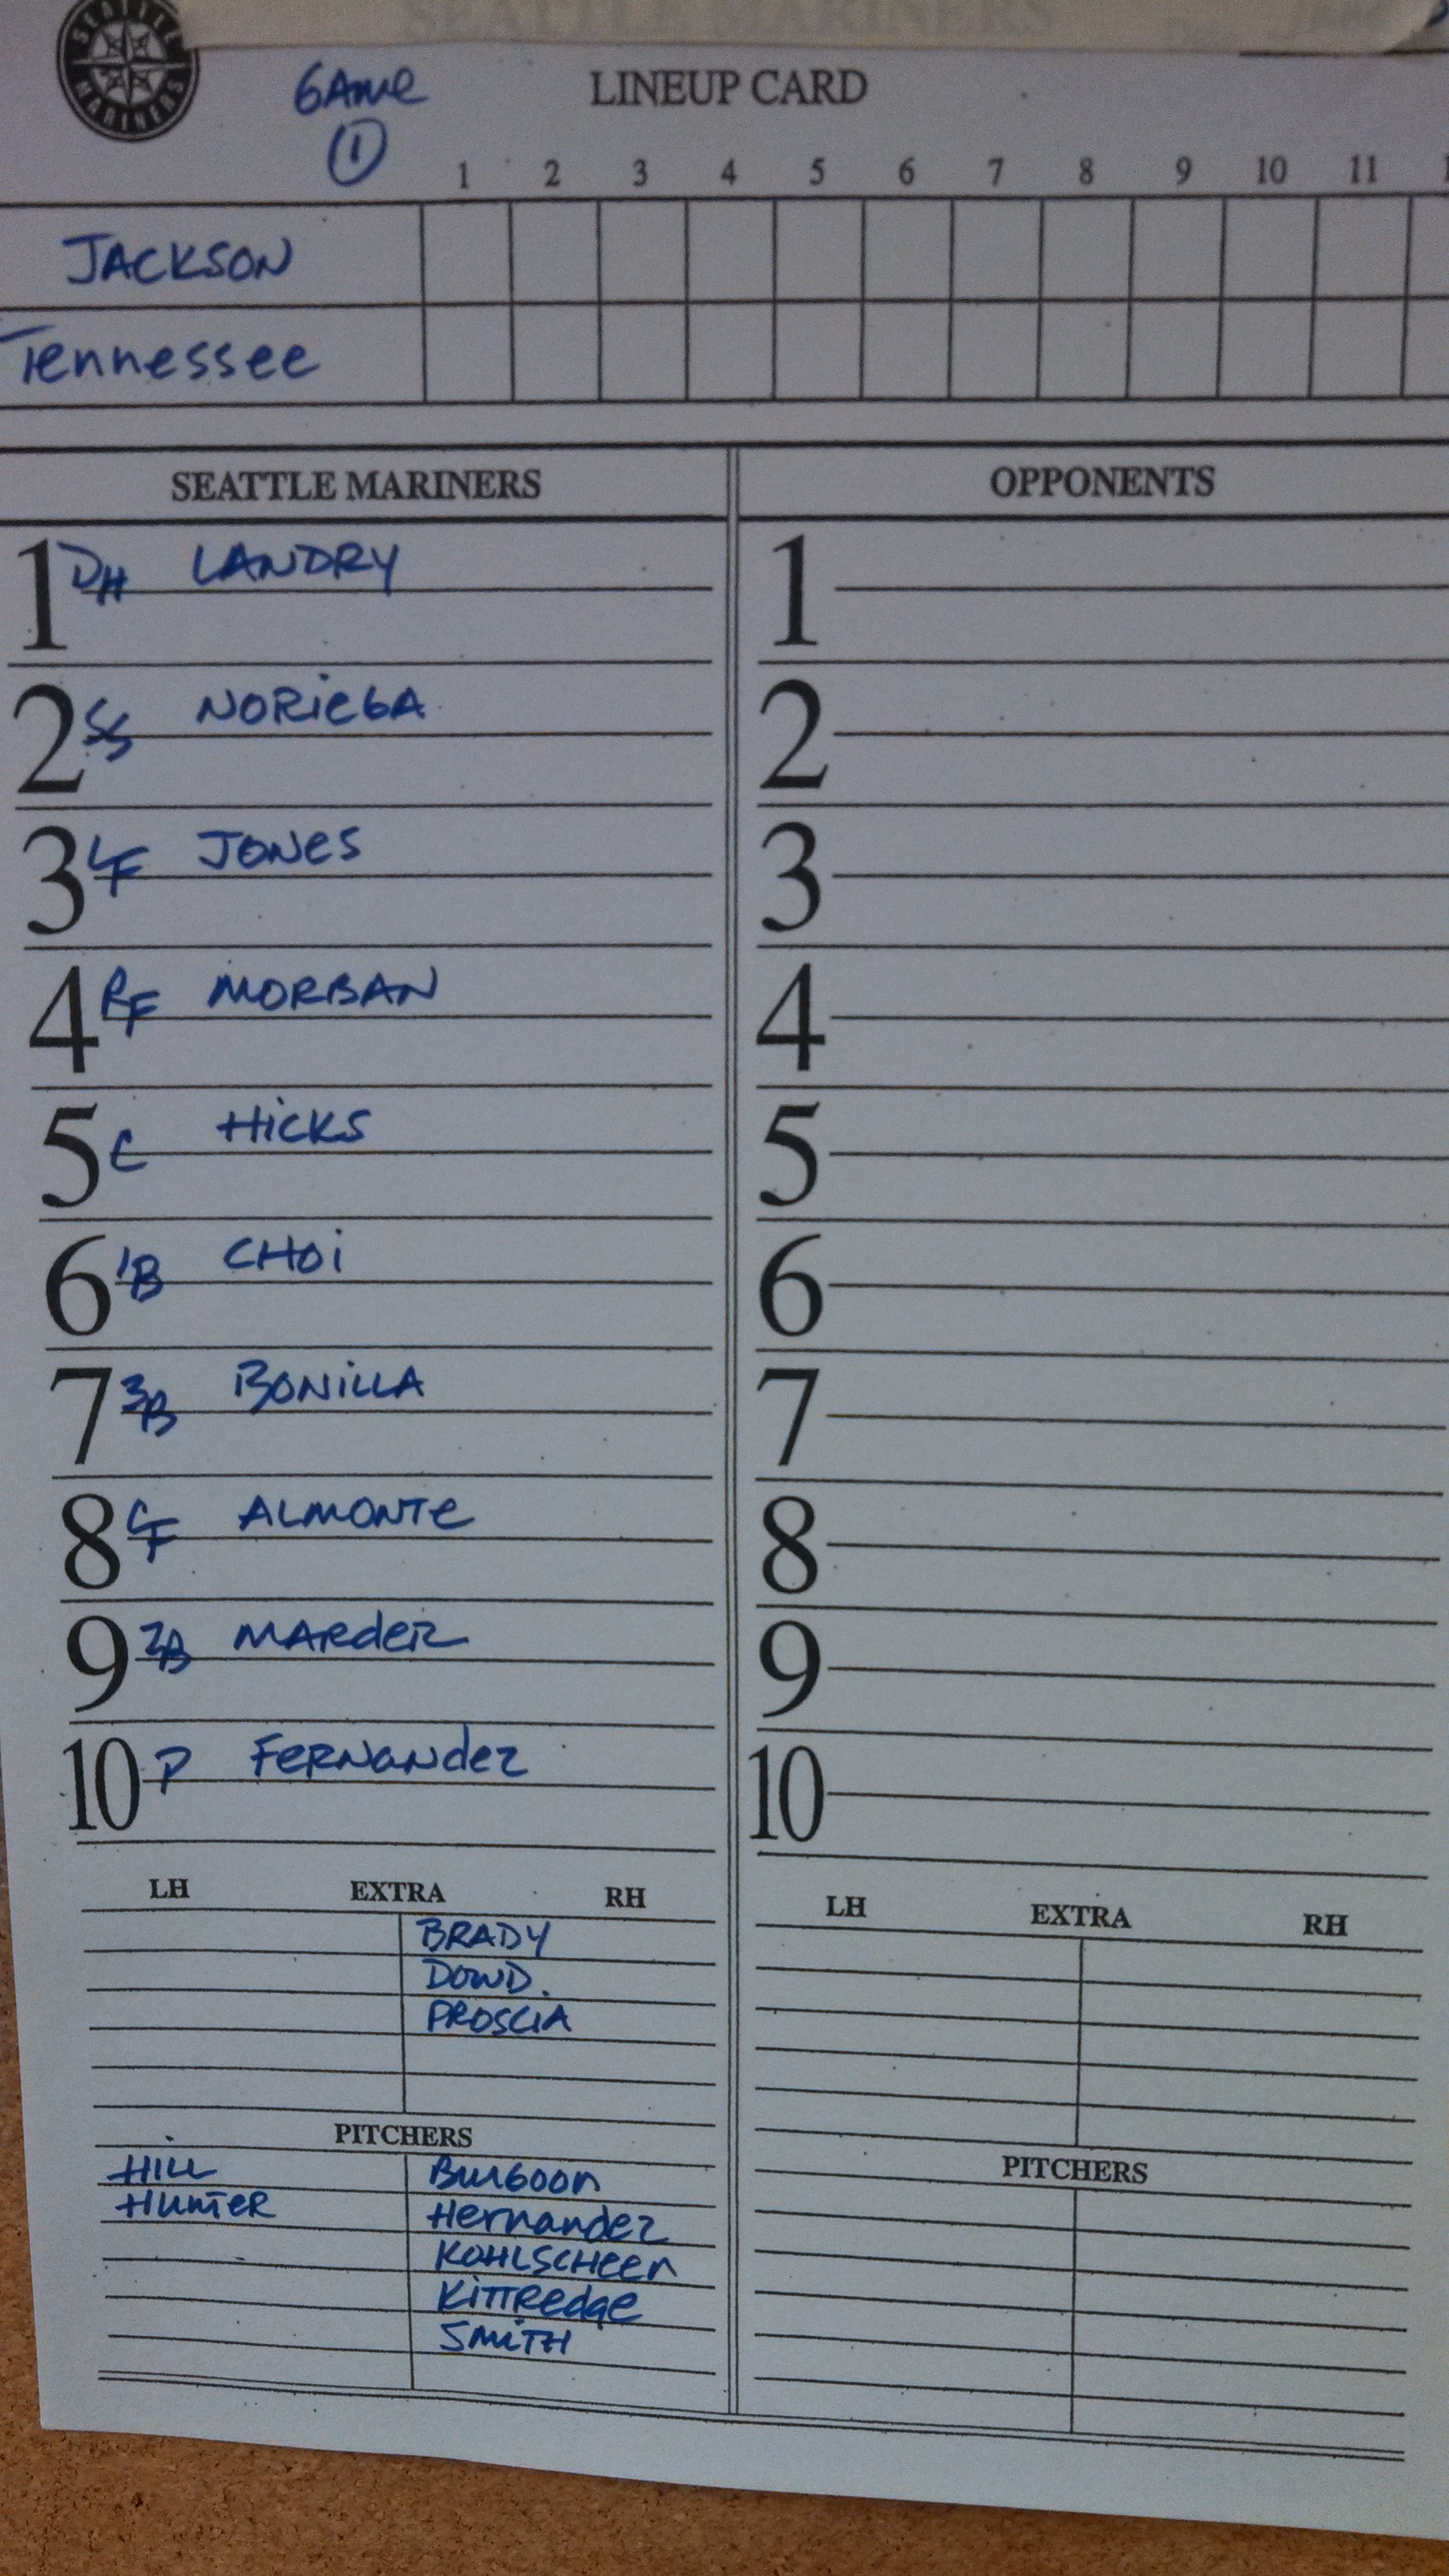 SEATTLE MARINERS
SEATTLE MARINERS
GAme LINEUP CARD
1
1 2 3 4 5 6 7 8 9 10 11
JACKSON
Tennessee
SEATTLE MARINERS OPPONENTS
1 DH LANDRY 1
2 SS NORiEGA 2
3 LF JONES 3
4 RF MORBAN 4
5 C HiCKS 5
6 1B CHOi 6
7 3B BONiLLA 7
8 CF ALMONTe 8
9 2B MARdeR 9
10 P FeRNaNdez 10
LH EXTRA RH LH EXTRA RH
BRADY
DOWD.
PROSCIA
PITCHERS PITCHERS
HiLL BuRGoon
HunTeR Hernandez
KOHLSCHeen
KiTTRedge
SMiTH